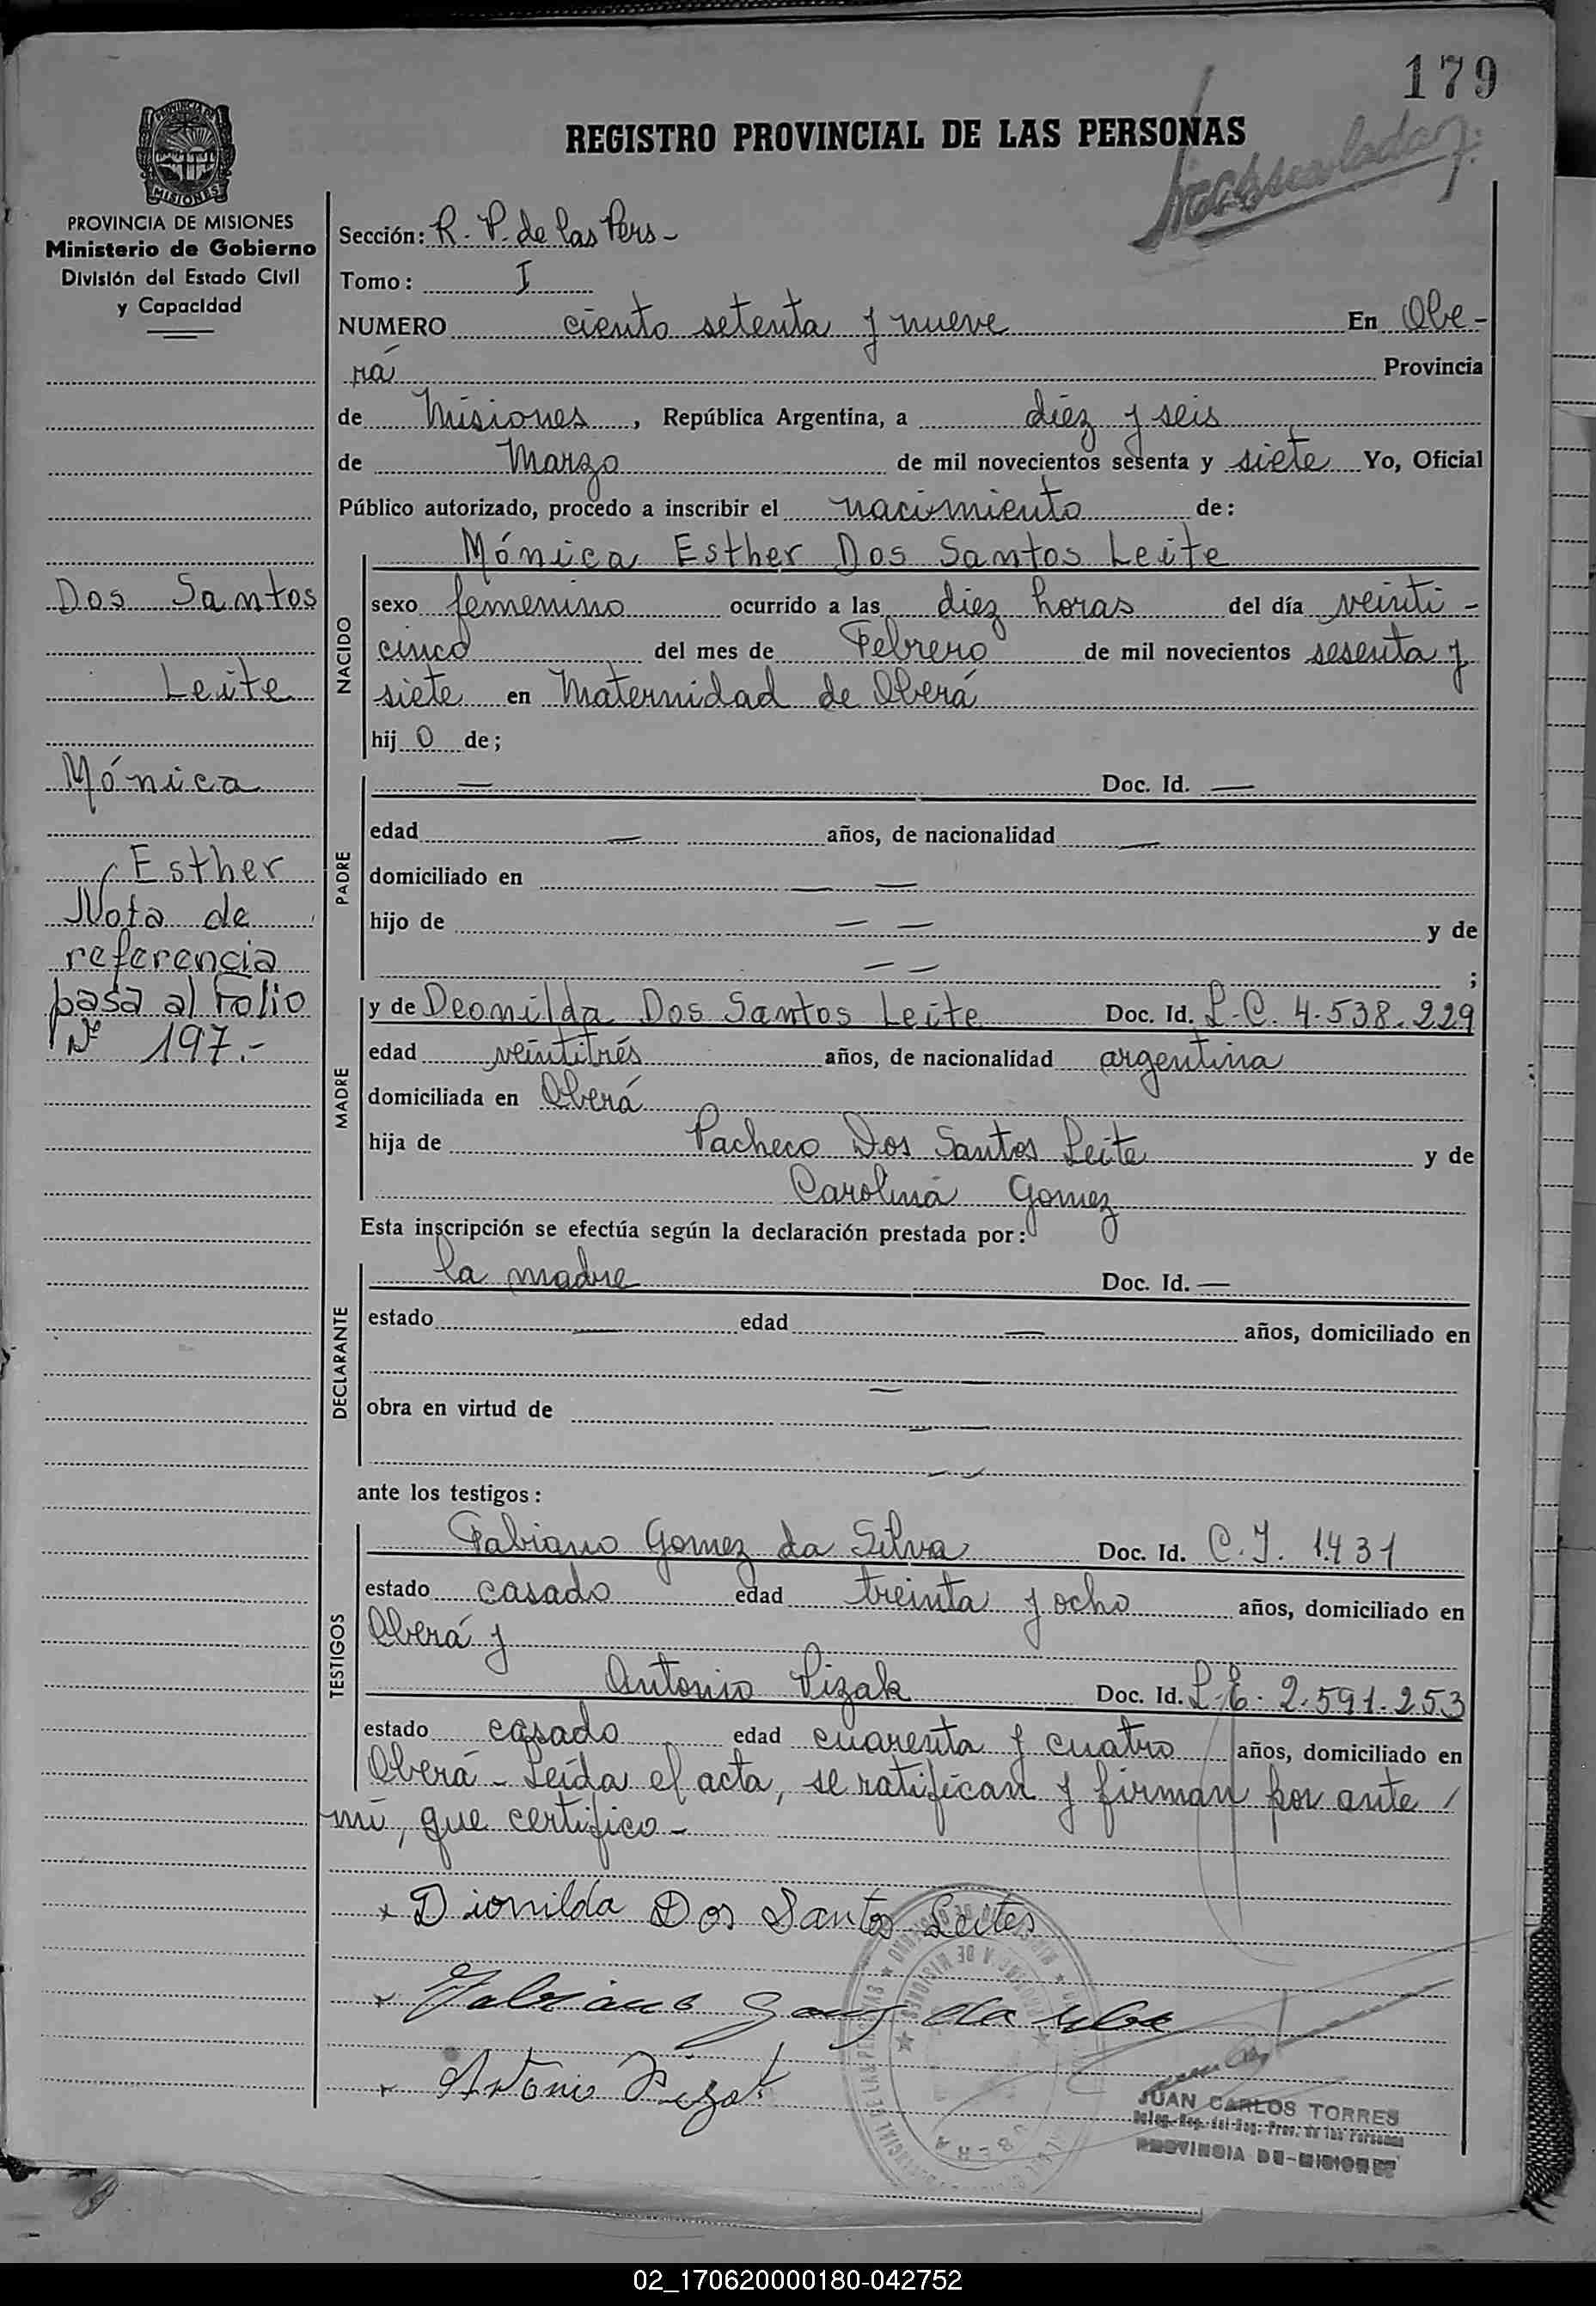 179
REGISTRO PROVINCIAL DE LAS PERSONAS
PROVINCIA DE MISIONES
Ministerio de Gobierno
División del Estado Civil
y Capacidad
Dos Santos
Leite
Mónica
Esther
Nota de
referencia
pasa al Folio
Nº 197.-
Sección: R. P. de las Pers-
Tomo: I
NUMERO ciento setenta y nueve En Obe-
rá Provincia
de Misiones, República Argentina, a diez y seis
de Marzo de mil novecientos sesenta y siete Yo, Oficial
Público autorizado, procedo a inscribir el nacimiento de:
NACIDO
Mónica Esther Dos Santos Leite
sexo femenino ocurrido a las diez horas del día veinti-
cinco del mes de Febrero de mil novecientos sesenta y
siete en Maternidad de Oberá
hij o de;
PADRE
— Doc. Id. —
edad — años, de nacionalidad —
domiciliado en — —
hijo de — — y de
— — ;
MADRE
y de Deonilda Dos Santos Leite Doc. Id. L.C. 4.538.229
edad veintitrés años, de nacionalidad argentina
domiciliada en Oberá
hija de Pacheco Dos Santos Leite y de
Carolina Gomez
Esta inscripción se efectúa según la declaración prestada por:
DECLARANTE
la madre Doc. Id. —
estado — edad — años, domiciliado en
— —
obra en virtud de — —
— —
ante los testigos:
TESTIGOS
Fabiano Gomez da Silva Doc. Id. C.I. 1431
estado casado edad treinta y ocho años, domiciliado en
Oberá y
Antonio Pizak Doc. Id. L.E. 2.591.253
estado casado edad cuarenta y cuatro años, domiciliado en
Oberá - Leída el acta, se ratifican y firman por ante
mí, que certifico-
x Dionilda Dos Santos Leites
x Fabiano Gomez da Silva
x Antonio
JUAN CARLOS TORRES
PROVINCIA DE MISIONES
02_170620000180-042752